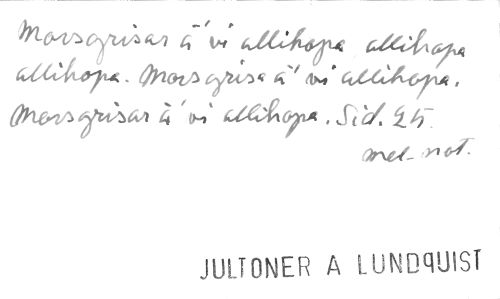 Morsgrisar ä' vi allihopa allihopa
allihopa. Morsgrisa ä' vi allihopa.
Morsgrisar ä' vi allihopa. Sid. 25.
mel-not.
JULTONER A LUNDQUIST